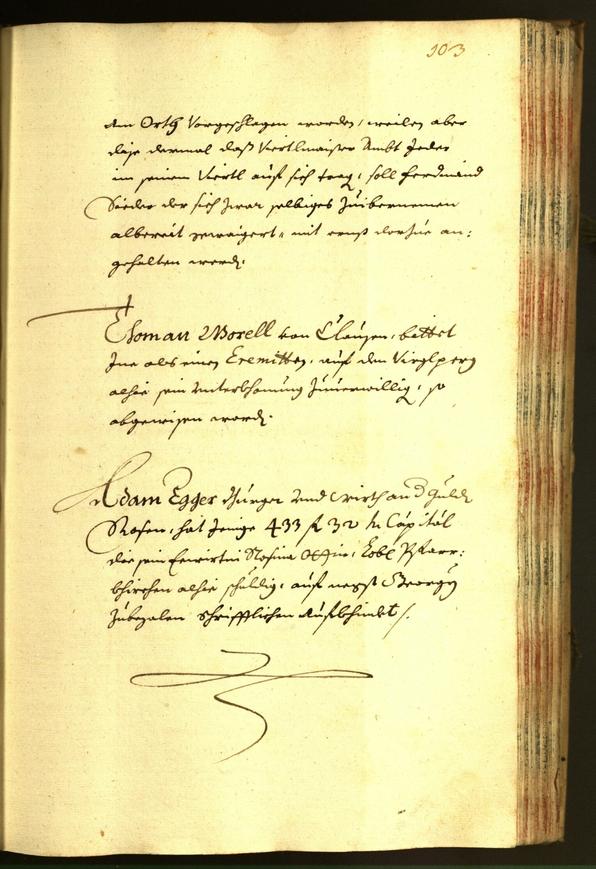 103
den Orth Vorgeschlagen worden, weilen aber
dise dermal daß Viertlmaister Ambt Jeder
im seinem Viertl auf sich trag, soll Ferdinand
Sieder der sich zwar selbiges zuübernemen
alberait gewaigert, mit ernst darzue an:
gehalten werdn.
Thoman Morell von Clausen, bittet
Ine als einen Eremitten, auf den Virglperg
alhie sein unterkhomung zuuerwillig, so
abgewisen wordn.
Adam Egger Burger und Wirth an d guldn
Rosen, hat Jenige 433 f 32 kr Capital
die sein Ewirtin Rosina Lobl Pfarr:
khirchen alhie schuldig, auf negst Georgy
zubezalen schrifftlichen aufkhindt /.